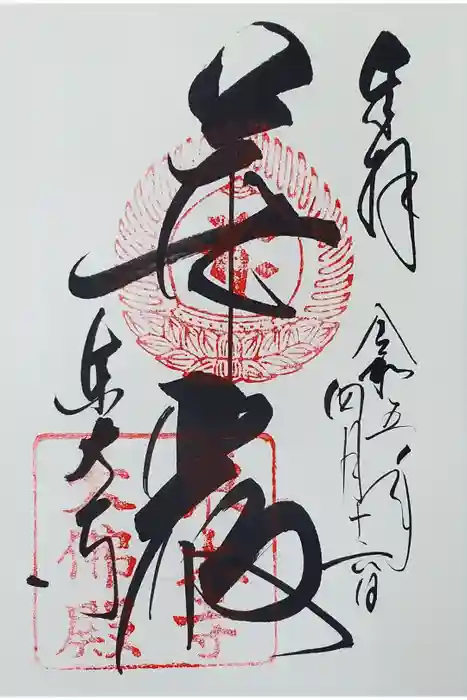 奉拝
令和五年
四月十六日
華厳
東大寺
東大寺
大佛殿